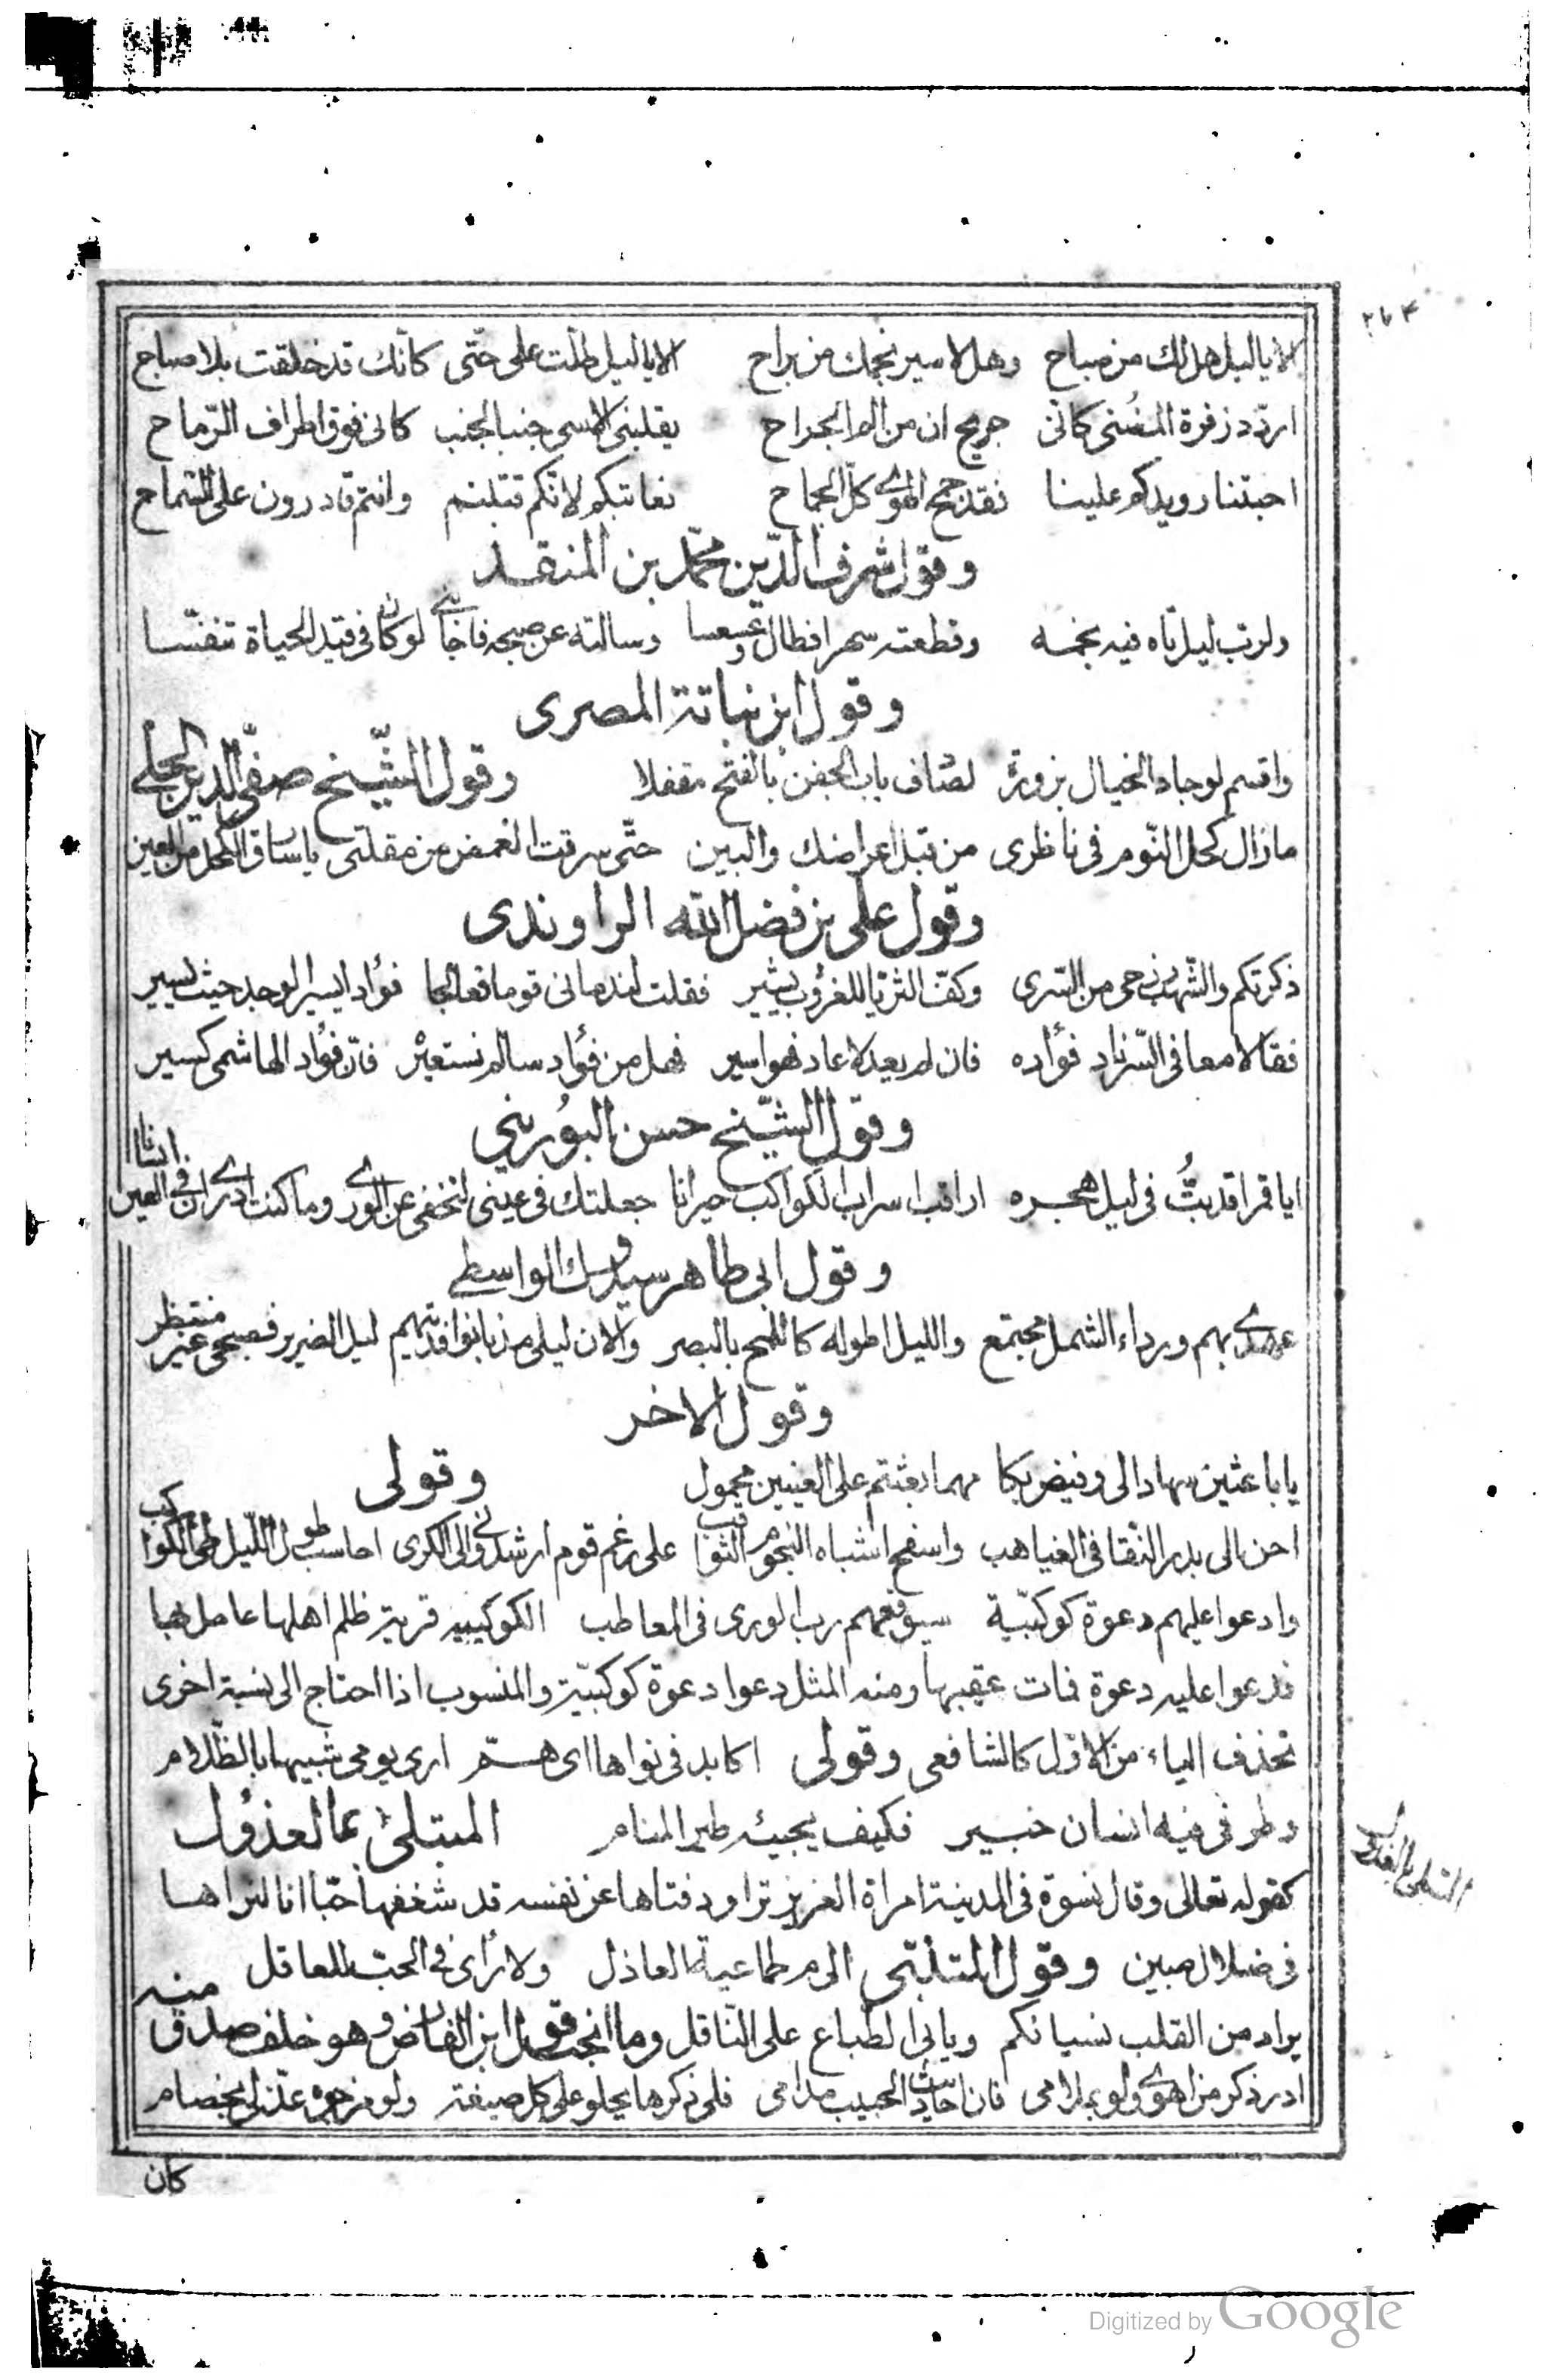 ٢٦٤
الا يا ليل هل لك من صباح وهل لاسير نجمك من براح الا يا ليل طلت على حتّى كانّك قد خلقت بلا صباح
اردّد زفرة المضنى كانّى جريح ان من الم الجراح يقلبنى الاسى جنبا لجنب كانى فوق اطراف الرّماح
احبتنا رويدكم علينا فقد جمح الهوى كلّ الجماح نعاتبكم لانّكم قتلتم وانتم قادرون على السّماح
وقول شرف الدّين محمّد بن المنقذ
ولربّ ليل تاه فيه نجمه وقطعته سهرا فطال وعسعسا وسالته عن صبحه فاجابنى لو كان فى قيد الحياة تنفّسا
وقول ابن نباتة المصرى
واقسم لو جاد الخيال بزورة لصادف باب الجفن بالفتح مقفلا وقول الشّيخ صفىّ الدين الحلّى
مازال كحل النّوم فى ناظرى من قبل اعراضك والبين حتّى سرقت الغمض من مقلتى يا سارق الكحل من العين
وقول على بن فضل الله الراوندى
ذكرتكم والشّهب فى حمى من السّرى وكفّ الثريّا للغروب يشير فقلت لندمانى قوما فعالجا فؤادا يسير الوجد حيث يسير
فقالا معا فى السّر زاد فؤاده فان لم يعد لا عاد فهو اسير فهل من فؤاد سالم نستعيره فانّ فؤاد الهاشمى كسير
وقول الشّيخ حسن البُورينى
ايا قمرا قد بتُّ فى ليل هجره اراقب اسراب الكواكب حيرانا جعلتك فى عينى لتخفى عن الورى وما كنت ادرى ان فى العين انسانا
وقول ابى طاهر سيدوك الواسطى
عهدى بهم ورداء الشمل مجتمع والليل اطوله كاللمح بالبصر والان ليلى مذ بانوا فديتهم ليل الضرير فصبحى غير منتظر
وقول الاخر
يا باعثين سهادا لى وفيض بكا مهما بعثتم على العينين محمول وقولى
احن الى بدر النّقا فى الغياهب واسفح اشباه النجوم الثواقب على رغم قوم ارشدونى الى الكرى احاسب طول اللّيل طى الكواكب
وادعوا عليهم دعوة كوكبيّة سيوقعهم رب الورى فى المعاطب الكوكبيه قرية ظلم اهلها عامل لها
فدعوا عليه دعوة فمات عقيبها ومنه المثل دعوا دعوة كوكبيّة والمنسوب اذا احتاج الى نسبة اخرى
تحذف الياء من الاوّل كالشافعى وقولى اكابد فى نواها اى همّ ارى يومى شبيها بالظّلام
وطرفى فيه انسان خبير فكيف يجيئه طير المنام المبتلى بالعذول
كقوله تعالى وقال نسوة فى المدينة امراة العزيز تراود فتاها عن نفسه قد شغفها حبّا انا لنراها
فى ضلال مبين وقول المتنبّى الى م طماعية العاذل ولا رأى فى الحبّ للعاقل
يراد من القلب نسيانكم ويابى الطّباع على النّاقل وما انجب قول ابن الفارض وهو خلف صدق منه
ادر ذكر من اهوى ولو بملامى فان احاديث الحبيب مدامى فلى ذكرها يحلو على كل صيغة ولو مزجوه عذّلى بخصام
المبتلى بالعذول
كان
Digitized by Google